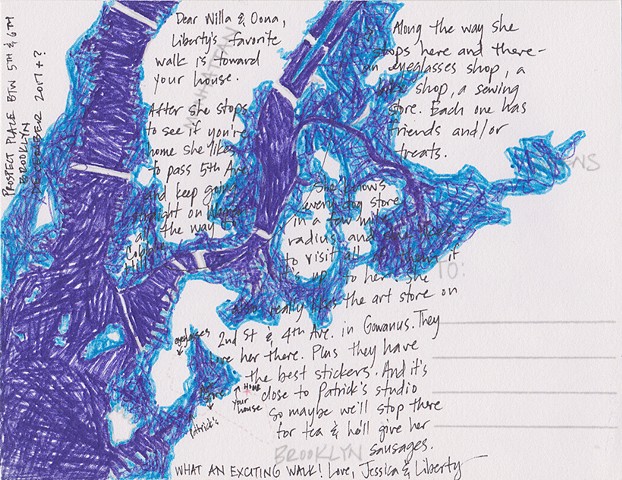 PROSPECT PLACE BTW 5TH & 6TH
BROOKLYN
2017 + ?
Dear Willa & Oona,
Liberty's favorite
walk is toward
your house.
After she stops
to see if you're
home she likes
to pass 5th Ave
and keep going
straight on
all the way to
Cobble
Hill.
Along the way she
stops here and there-
an eyeglasses shop, a
bike shop, a sewing
store. Each one has
friends and/or
treats.
She knows
every dog store
in a few mile
radius and
to visit all
it's up to her. She
really likes the art store on
2nd St & 4th Ave. in Gowanus. They
her there. Plus they have
the best stickers. And it's
close to Patrick's studio
so maybe we'll stop there
for tea & he'll give her
sausages.
WHAT AN EXCITING WALK! Love, Jessica & Liberty
eyeglasses
HOME
your
house
Patrick's
MANHATTAN
TO:
BROOKLYN